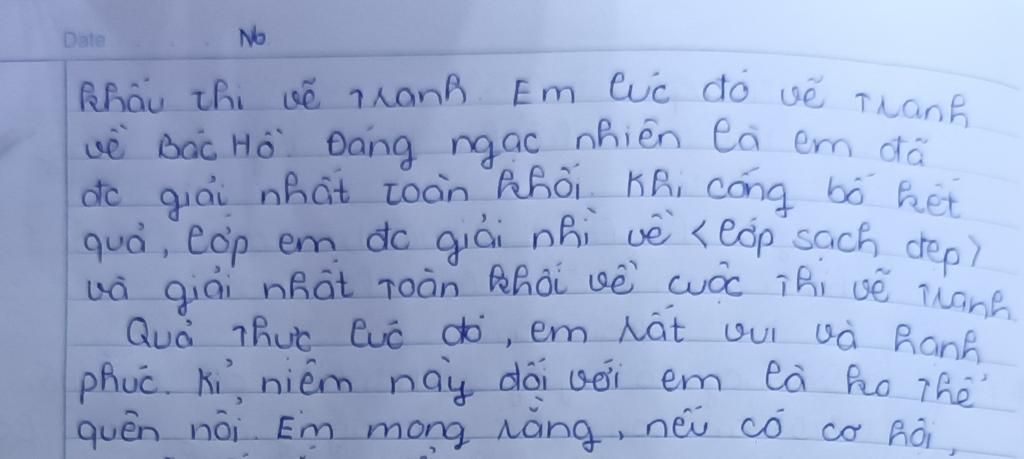 Date No
khấu thi vẽ tranh. Em lúc đó vẽ tranh
về Bác Hồ. Đáng ngạc nhiên là em đã
đc giải nhất toàn khối. Khi công bố kết
quả, lớp em đc giải nhì về <lớp sạch đẹp>
và giải nhất toàn khối về cuộc thi vẽ tranh
Quả thực lúc đó, em rất vui và hạnh
phúc. Kỉ niệm này đối với em là ko thể
quên nổi. Em mong rằng, nếu có cơ hội,